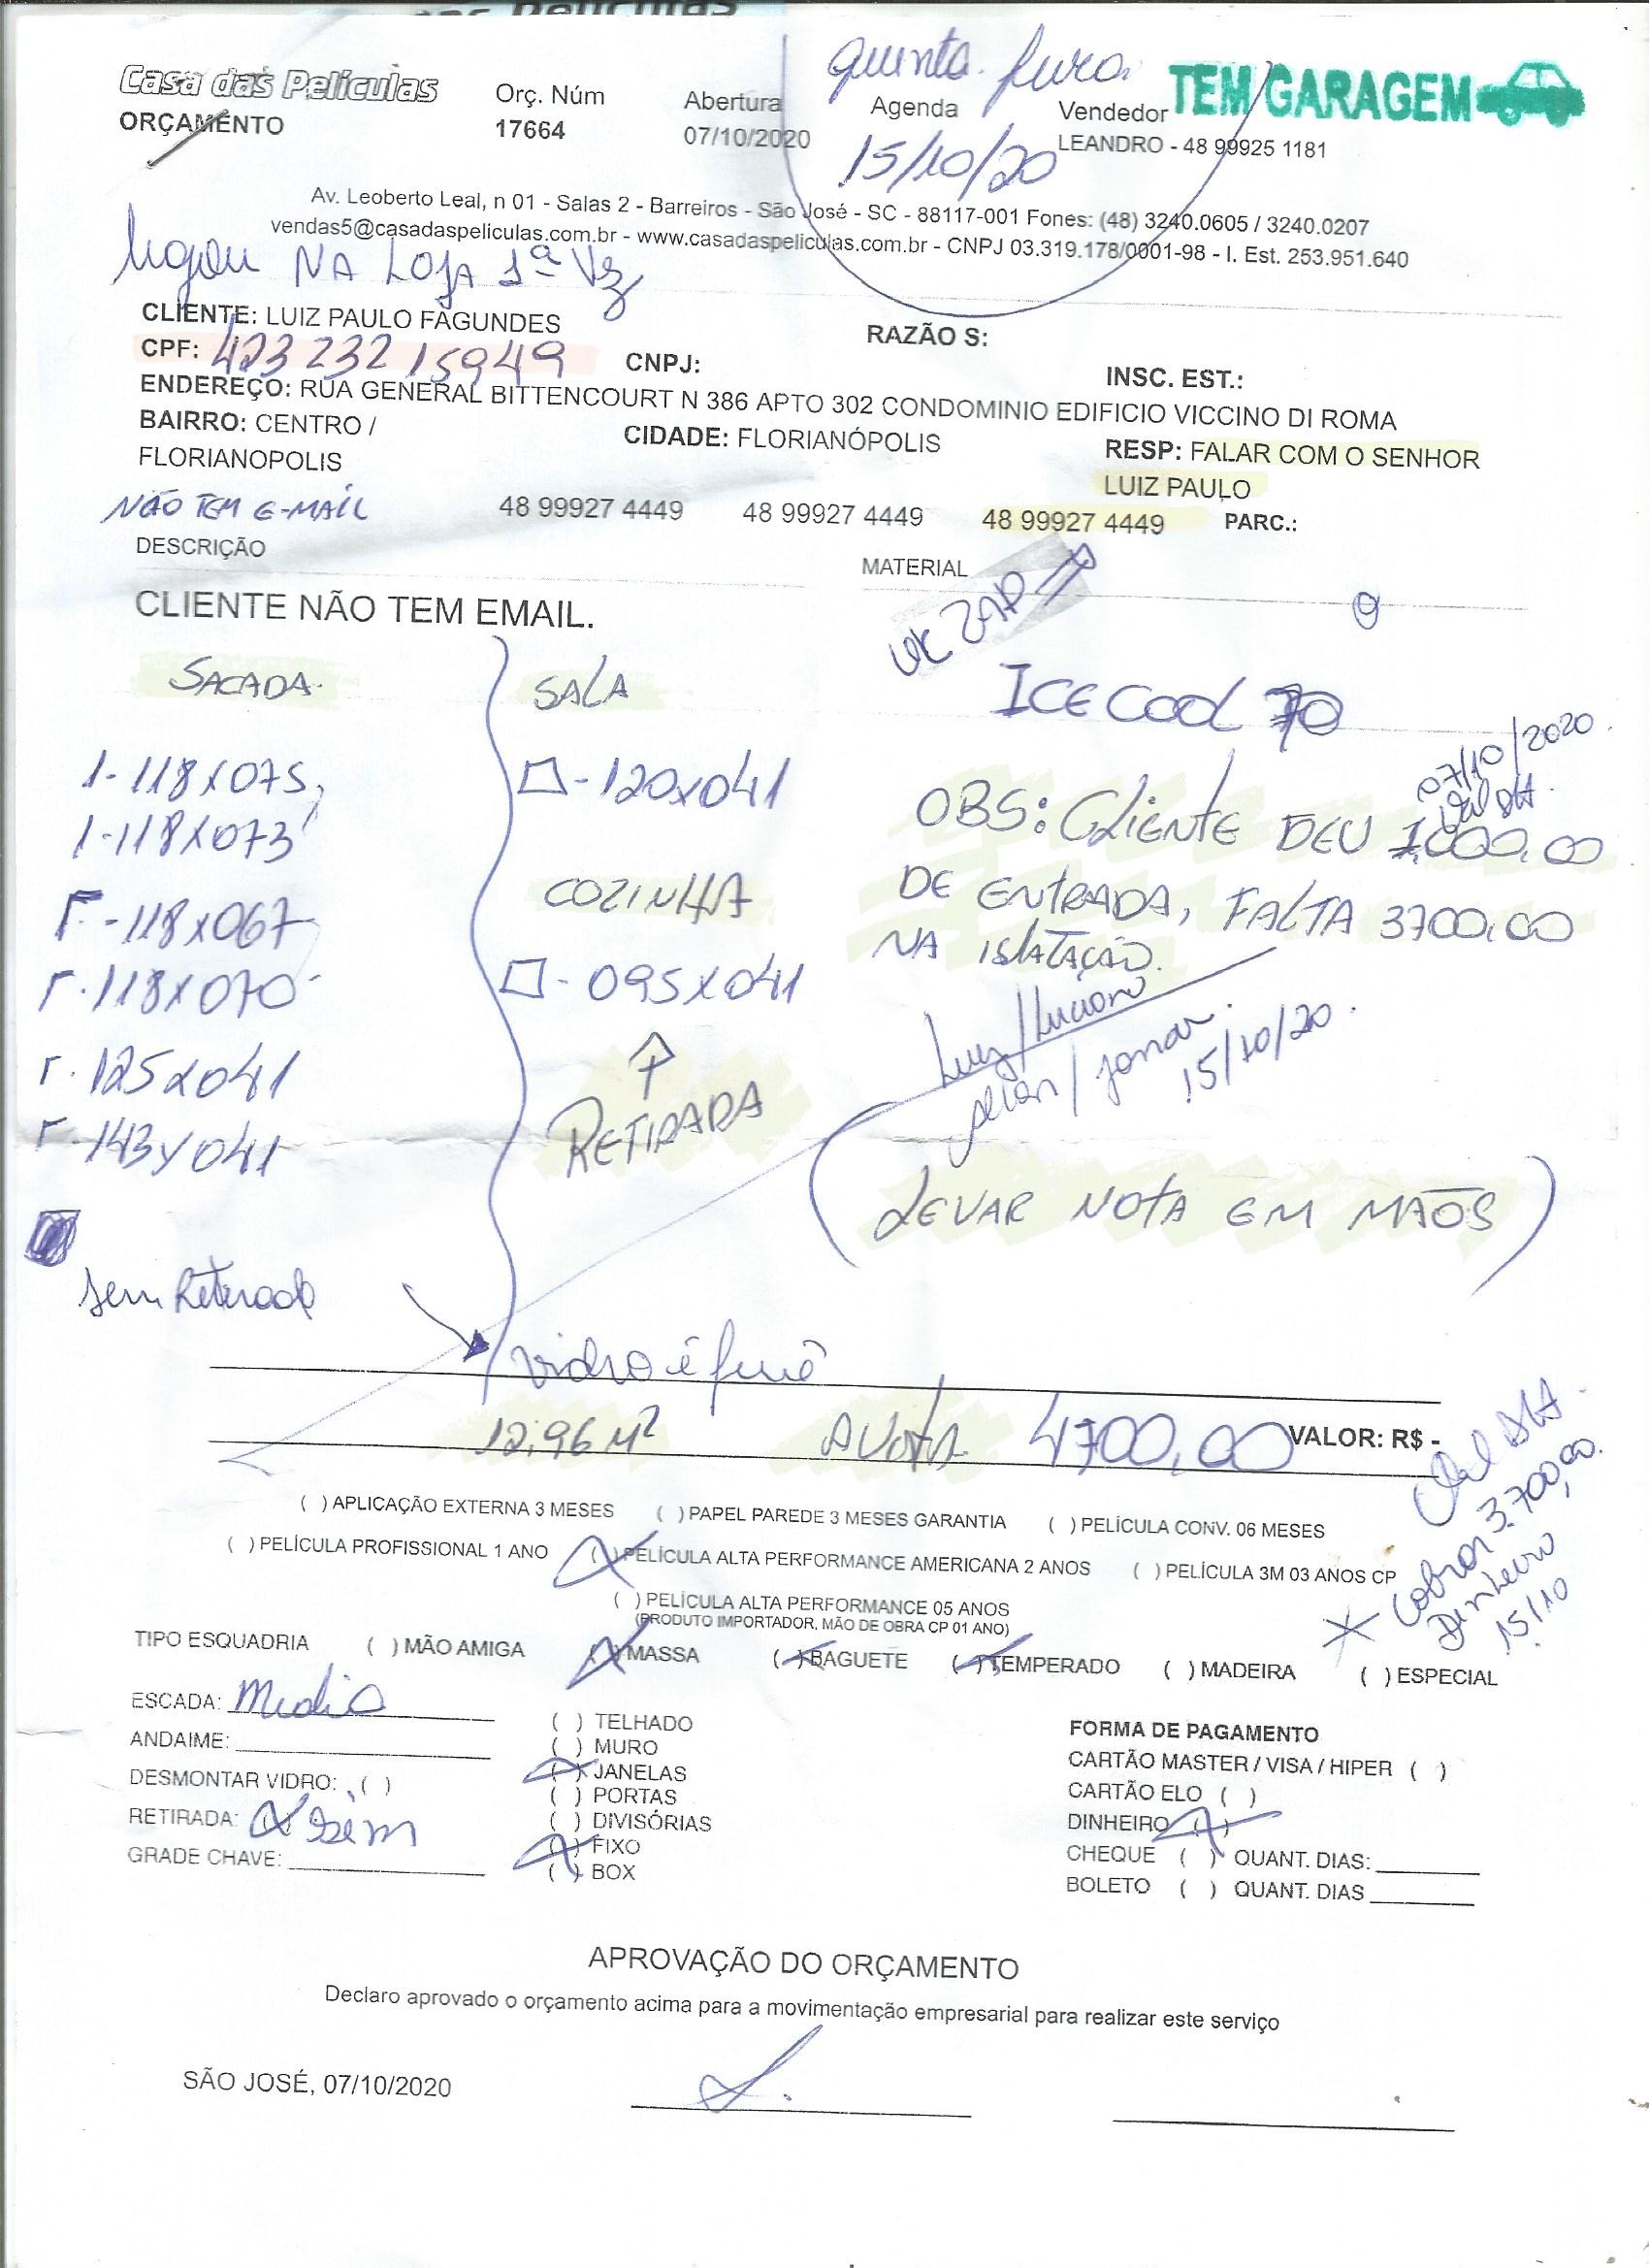 quinta. feira
Casa das Películas
ORÇAMENTO
Orç. Núm
17664
Abertura
07/10/2020
Agenda
15/10/20
Vendedor
LEANDRO - 48 99925 1181
TEM GARAGEM
Av. Leoberto Leal, n 01 - Salas 2 - Barreiros - São José - SC - 88117-001 Fones: (48) 3240.0605 / 3240.0207
vendas5@casadaspeliculas.com.br - www.casadaspeliculas.com.br - CNPJ 03.319.178/0001-98 - I. Est. 253.951.640
ligou NA LOJA 1ª Vez
CLIENTE: LUIZ PAULO FAGUNDES
RAZÃO S:
CPF: 423 232 15949
CNPJ:
INSC. EST.:
ENDEREÇO: RUA GENERAL BITTENCOURT N 386 APTO 302 CONDOMINIO EDIFICIO VICCINO DI ROMA
BAIRRO: CENTRO /
FLORIANOPOLIS
CIDADE: FLORIANÓPOLIS
RESP: FALAR COM O SENHOR
LUIZ PAULO
NÃO TEM E-MAIL
48 99927 4449
48 99927 4449
48 99927 4449
PARC.:
DESCRIÇÃO
MATERIAL
CLIENTE NÃO TEM EMAIL.
ZAP
SACADA.
SALA
ICE COOL 70
1-118X075
1-118X073
1-118X067
1-118X070
1-125X041
1-143X041
120X041
COZINHA
095X041
RETIRADA
07/10/2020
OBS: CLIENTE DEU 1.000,00
DE ENTRADA, FALTA 3700,00
NA ISLATAÇÃO.
Luiz / Luciano
15/10/20.
(LEVAR NOTA EM MÃOS)
sem Retirada
vidro é fumê
12,96 M²
AVISTA
4700,00
VALOR: R$ -
( ) APLICAÇÃO EXTERNA 3 MESES
( ) PAPEL PAREDE 3 MESES GARANTIA
( ) PELÍCULA CONV. 06 MESES
( ) PELÍCULA PROFISSIONAL 1 ANO
(X) PELÍCULA ALTA PERFORMANCE AMERICANA 2 ANOS
( ) PELÍCULA 3M 03 ANOS CP
( ) PELÍCULA ALTA PERFORMANCE 05 ANOS
(PRODUTO IMPORTADOR, MÃO DE OBRA CP 01 ANO)
Cobrar 3.700,00.
Dinheiro
15/10
TIPO ESQUADRIA
( ) MÃO AMIGA
(X) MASSA
(X) BAGUETE
(X) TEMPERADO
( ) MADEIRA
( ) ESPECIAL
ESCADA: Media
ANDAIME:
DESMONTAR VIDRO: ( )
RETIRADA: (X) sim
GRADE CHAVE:
( ) TELHADO
( ) MURO
(X) JANELAS
( ) PORTAS
( ) DIVISÓRIAS
(X) FIXO
( ) BOX
FORMA DE PAGAMENTO
CARTÃO MASTER / VISA / HIPER ( )
CARTÃO ELO ( )
DINHEIRO (X)
CHEQUE ( ) QUANT. DIAS:
BOLETO ( ) QUANT. DIAS
APROVAÇÃO DO ORÇAMENTO
Declaro aprovado o orçamento acima para a movimentação empresarial para realizar este serviço
SÃO JOSÉ, 07/10/2020